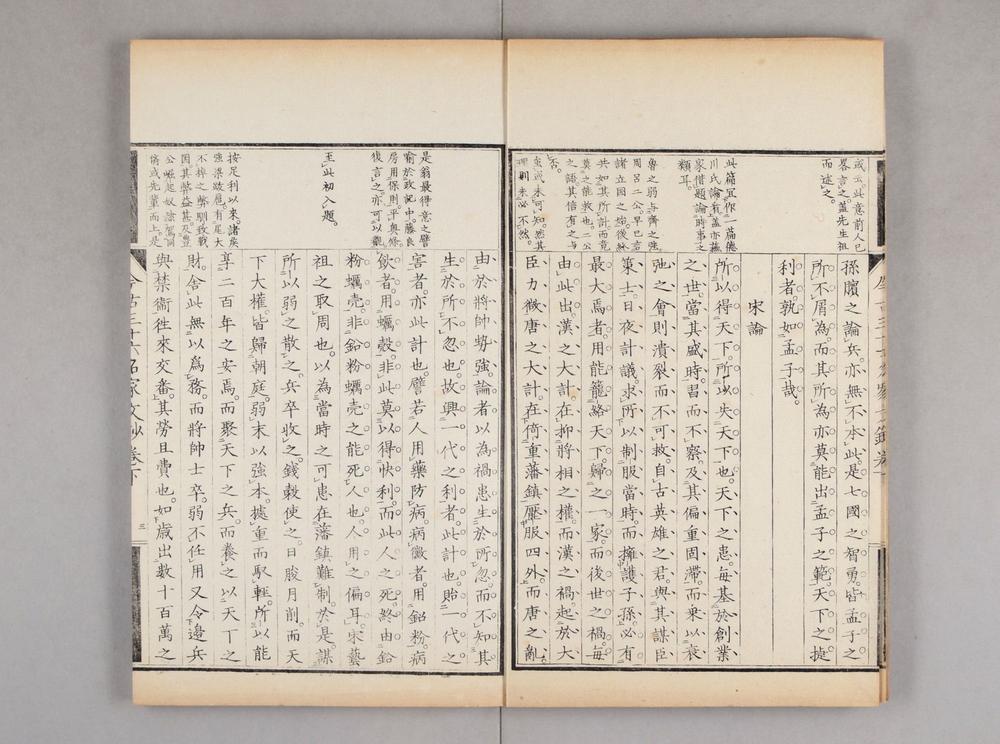 或云此意前人已
畧言之蓋先生祖
而述之
此篇宜作一篇德
川氏論看蓋亦蘇
家借題論時事之
類耳
魯之弱与齊之強
周呂二公早已言
諸立國之始後終
共如其所計而竟
莫之能救也二公
之語其信有之与
否
或未可知然其
理則未必不然
孫臏之論兵亦無不本此是七國之智勇皆孟子之
所不屑為而其所為亦莫能出孟子之範天下之捷
利者孰如孟子哉
宋論
所以得天下所以失天下也天下之患每基於創業
之世當其盛時習而不察及其偏重固滯而乘以衰
弛之會則潰裂而不可救自古英雄之君與其謀臣
策士日夜計議求所以制服當時而擁護子孫必有
最大焉者用能籠絡天下歸之一家而後世之禍每
由此出漢之大計在抑將相之權而漢之禍起於大
臣力微唐之大計在倚重藩鎮壓服四外而唐之亂
是翁最得意之譬
喻於政記中藤良
房用保則平與條
復言之亦可以觀
王此初入題
按足利以來諸矦
強梁跋扈有尾大
不掉之弊馴致戰
國其弊益甚及豐
公崛起奴隸駕馭
僞或先輩而上是
由於將帥勢強論者以為禍患生於所忽而不知其
生於所不忍也故興一代之利者此計也貽一代之
害者亦此計也譬若人用藥防病病黴者用鉛粉病
飲者用蠣殼非此莫以得快利而此人之死終由鉛
粉蠣壳非鉛粉蠣壳之能死人也人用之偏耳宋藝
祖之取周也以為當時之可患在藩鎮難制於是謀
所以弱之散之兵卒收之錢穀使之日朘月削而天
下大權皆歸朝庭弱末以強本據重而馭輕所以能
享二百年之安焉而聚天下之兵而養之以天下之
財舍此無以爲務而將帥士卒弱不任用又令邊兵
與禁衞徃來交番其勞且費也如歲出數十百萬之
今古三十六名家文抄卷下
三